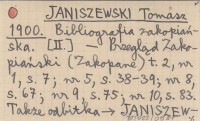 JANISZEWSKI Tomasz
1900. Bibliografia zakopiań-
ska. [II.] — Przegląd Zako-
piański (Zakopane) t. 2, nr
1, s. 7; nr 5, s. 38-39; nr 8,
s. 67; nr 9, s. 75; nr 10, s. 83.
Także odbitka → JANISZEW-